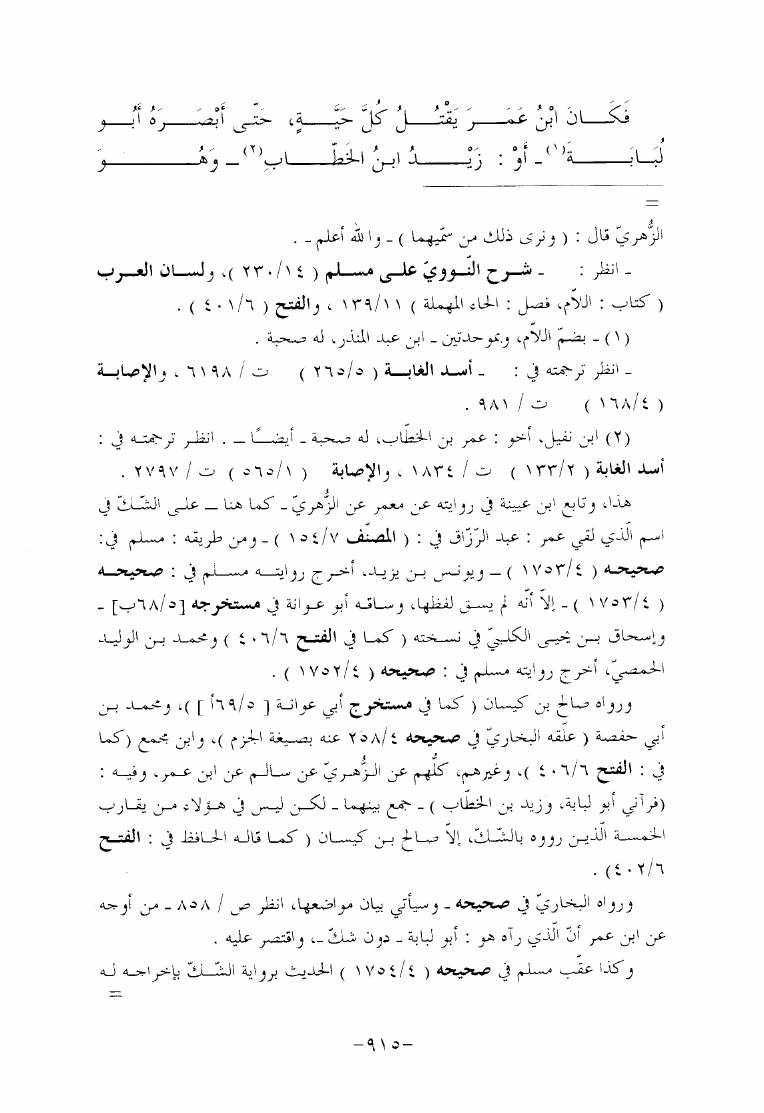 فَكَانَ ابْنُ عُمَرَ يَقْتُلُ كُلَّ حَيَّةٍ، حَتَّى أَبْصَرَهُ أَبُو
لُبَابَةَ(١) ـ أَوْ : زَيْدُ ابنُ الخَطَّابِ(٢) ـ وَهُوَ
=
الزُّهريّ قال : ( ونرى ذلك من سمّيهما ) ـ والله أعلم ـ .
ـ انظر : ـ شرح النّوويّ على مسلم ( ٢٣٠/١٤ )، ولسان العرب
( كتاب : اللاَّم، فصل : الحاء المهملة ) ١٣٩/١١ ، والفتح ( ٤٠١/٦ ) .
(١) ـ بضمّ اللاَّم، وبموحدتين ـ ابن عبد المنذر، له صحبة .
ـ انظر ترجمته في : ـ أسد الغابة ( ٢٦٥/٥ ) ت / ٦١٩٨ ، والإصابة
( ١٦٨/٤ ) ت / ٩٨١ .
(٢) ابن نفيل، أخو : عمر بن الخطاب، له صحبة ـ أيضًا ـ . انظر ترجمته في :
أسد الغابة ( ١٣٣/٢ ) ت / ١٨٣٤ ، والإصابة ( ٥٦٥/١ ) ت / ٢٧٩٧ .
هذا، وتابع ابن عيينة في روايته عن معمر عن الزُّهريّ ـ كما هنا ـ على الشّكّ في
اسم الّذي لقي عمر : عبد الرّزّاق في : ( المصنّف ١٥٤/٧ ) ـ ومن طريقه : مسلم في:
صحيحه ( ١٧٥٣/٤ ) ـ ويونس بن يزيد، أخرج روايته مسلم في : صحيحه
( ١٧٥٣/٤ ) ـ إلاّ أنّه لم يسق لفظها، وساقه أبو عوانة في مستخرجه [٦٨/٥ب] ـ
وإسحاق بن يحيى الكلبيّ في نسخته ( كما في الفتح ٤٠٦/٦ ) ومحمد بن الوليد
الحمصيّ، أخرج روايته مسلم في : صحيحه ( ١٧٥٢/٤ ) .
ورواه صالح بن كيسان ( كما في مستخرج أبي عوانة [ ٦٩/٥أ ] )، ومحمد بن
أبي حفصة ( علّقه البخاريّ في صحيحه ٢٥٨/٤ عنه بصيغة الجزم )، وابن مجمع (كما
في : الفتح ٤٠٦/٦ )، وغيرهم، كلّهم عن الزُّهريّ عن سالم عن ابن عمر، وفيه :
(فرآني أبو لبابة، وزيد بن الخطّاب ) ـ جمع بينهما ـ لكن ليس في هؤلاء من يقارب
الخمسة الّذين رووه بالشّكّ، إلاّ صالح بن كيسان ( كما قاله الحافظ في : الفتح
٤٠٢/٦) .
ورواه البخاريّ في صحيحه ـ وسيأتي بيان مواضعها، انظر ص / ٨٥٨ ـ من أوجه
عن ابن عمر أنّ الّذي رآه هو : أبو لبابة ـ دون شكّ ـ، واقتصر عليه .
وكذا عقّب مسلم في صحيحه ( ١٧٥٤/٤ ) الحديث برواية الشّكّ بإخراجه له
=
-٩١٥-